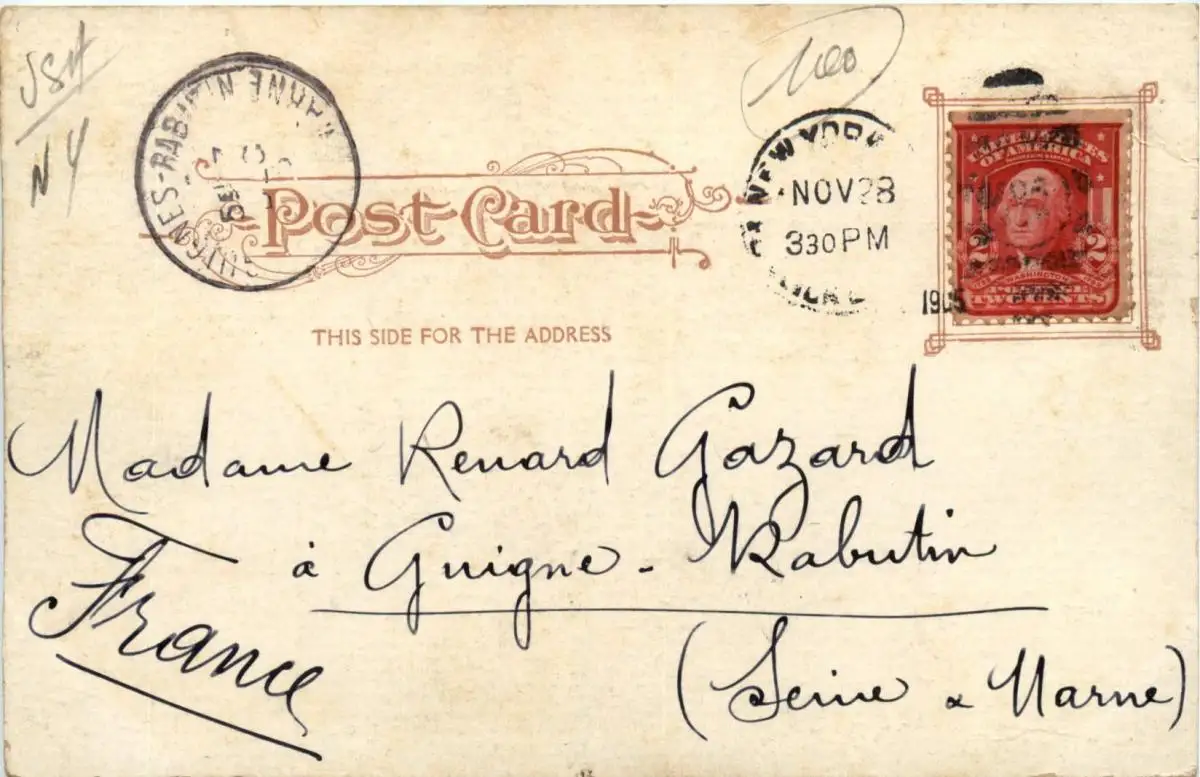 N Y
GUIGNES-RABUTIN
MARNE
NEW YORK
NOV 28
330 PM
1905
UNITED STATES
OF AMERICA
2 WASHINGTON 2
TWO CENTS
Post Card
THIS SIDE FOR THE ADDRESS
Madame Renard Gazard
à Guigne - Rabutin
France
(Seine & Marne)